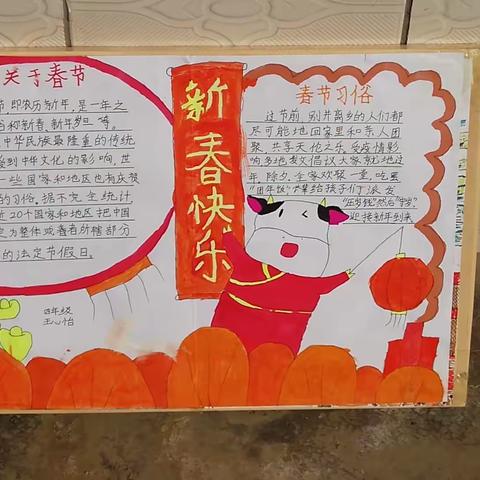 关于春节
节,即农历新年,是一年之
和新春、新年岁旦等。
中华民族最隆重的传统
受到中华文化的影响,世
一些国家和地区也有庆贺
的习俗。据不完全统计,
近20个国家和地区把中国
定为整体或者所辖部分
的法定节假日。
四年级
王心怡
新春快乐
春节习俗
过节前,别井离乡的人们都
尽可能地回家里和亲人团
聚,共享天伦之乐,受疫情影
响多地发文倡议大家就地过
年。除夕,全家欢聚一堂,吃罢
"团年饭"长辈给孩子们派发
"压岁钱"然后"守岁"
迎接新年到来